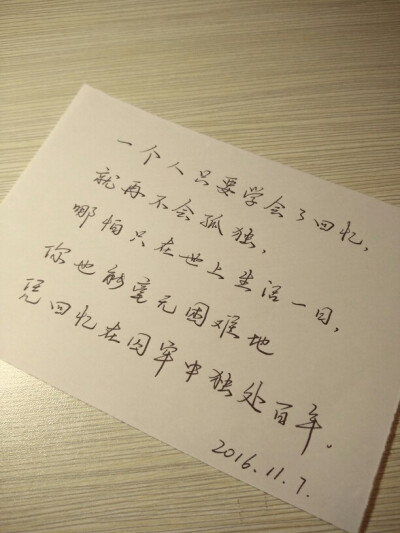 一个人只要学会了回忆,
就再不会孤独,
哪怕只在世上生活一日,
你也能毫无困难地
凭回忆在囚牢中独处百年。
2016.11.7.